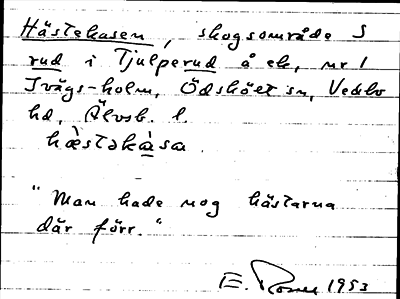 Hästekasen, skogsområde S
rud i Tjulperud å ek, nr 1
Tvägs-holm, Ödsköet sn, Vedbo
hd, Älvsb. l.
hæ̀stəkàsa.
"Man hade nog hästarna
där förr."
E. 1953